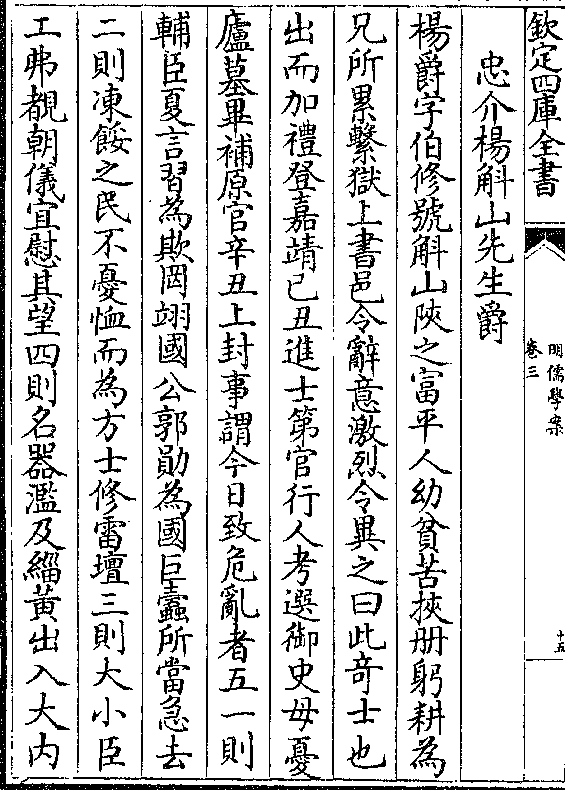 欽定四庫全書
明儒學案
卷三
十五
忠介楊斛山先生爵
楊爵字伯修號斛山陝之富平人幼貧苦挾册躬耕為
兄所累繫獄上書邑令辭意激烈令異之曰此奇士也
出而加禮登嘉靖己丑進士第官行人考選御史母憂
廬墓畢補原官辛丑上封事謂今日致危亂者五一則
輔臣夏言習為欺罔翊國公郭勛為國巨蠹所當急去
二則凍餒之民不憂恤而為方士修雷壇三則大小臣
工弗覩朝儀宜慰其望四則名器濫及緇黄出入大内